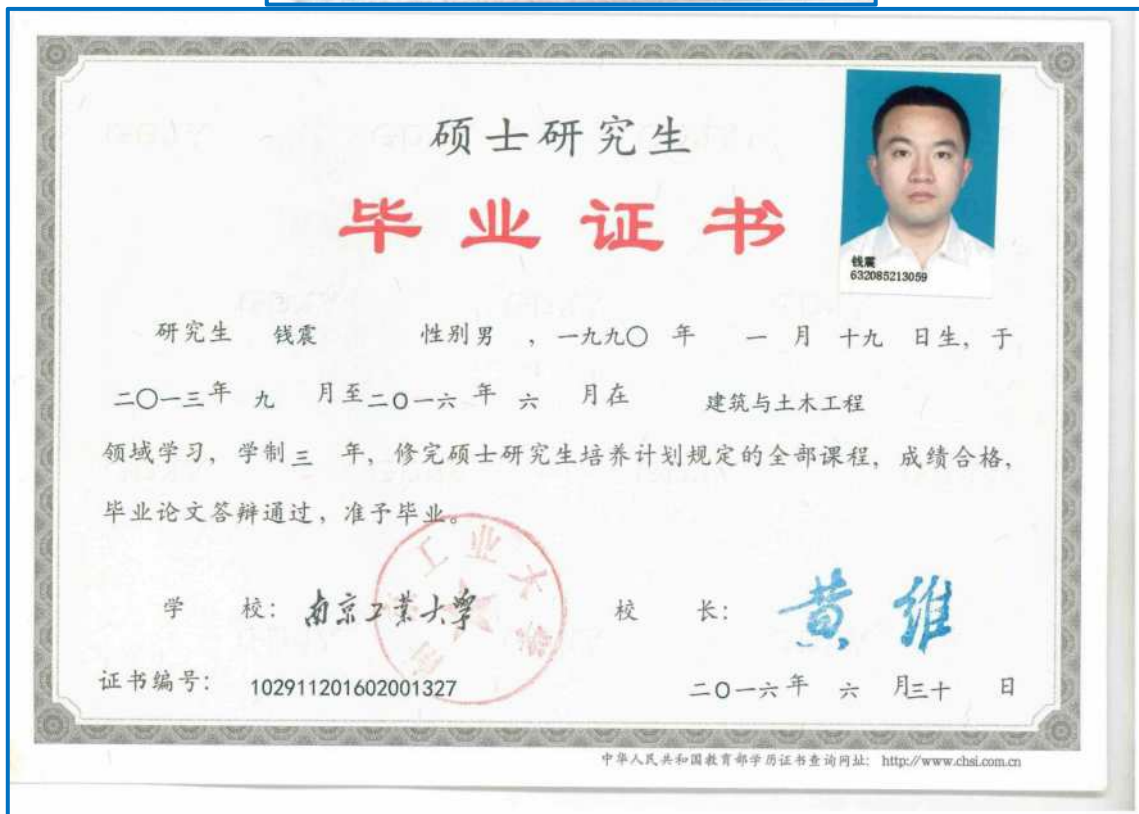 硕士研究生
毕业证书
钱震
632085213059
研究生 钱震 性别男 ，一九九〇 年 一 月 十九 日生，于
二〇一三年 九 月至二〇一六 年 六 月在 建筑与土木工程
领域学习，学制三 年，修完硕士研究生培养计划规定的全部课程，成绩合格，
毕业论文答辩通过，准予毕业。
工业大学
学 校：南京工业大学 校 长：黄维
证书编号：102911201602001327 二〇一六年 六 月三十 日
中华人民共和国教育部学历证书查询网址：http://www.chsi.com.cn